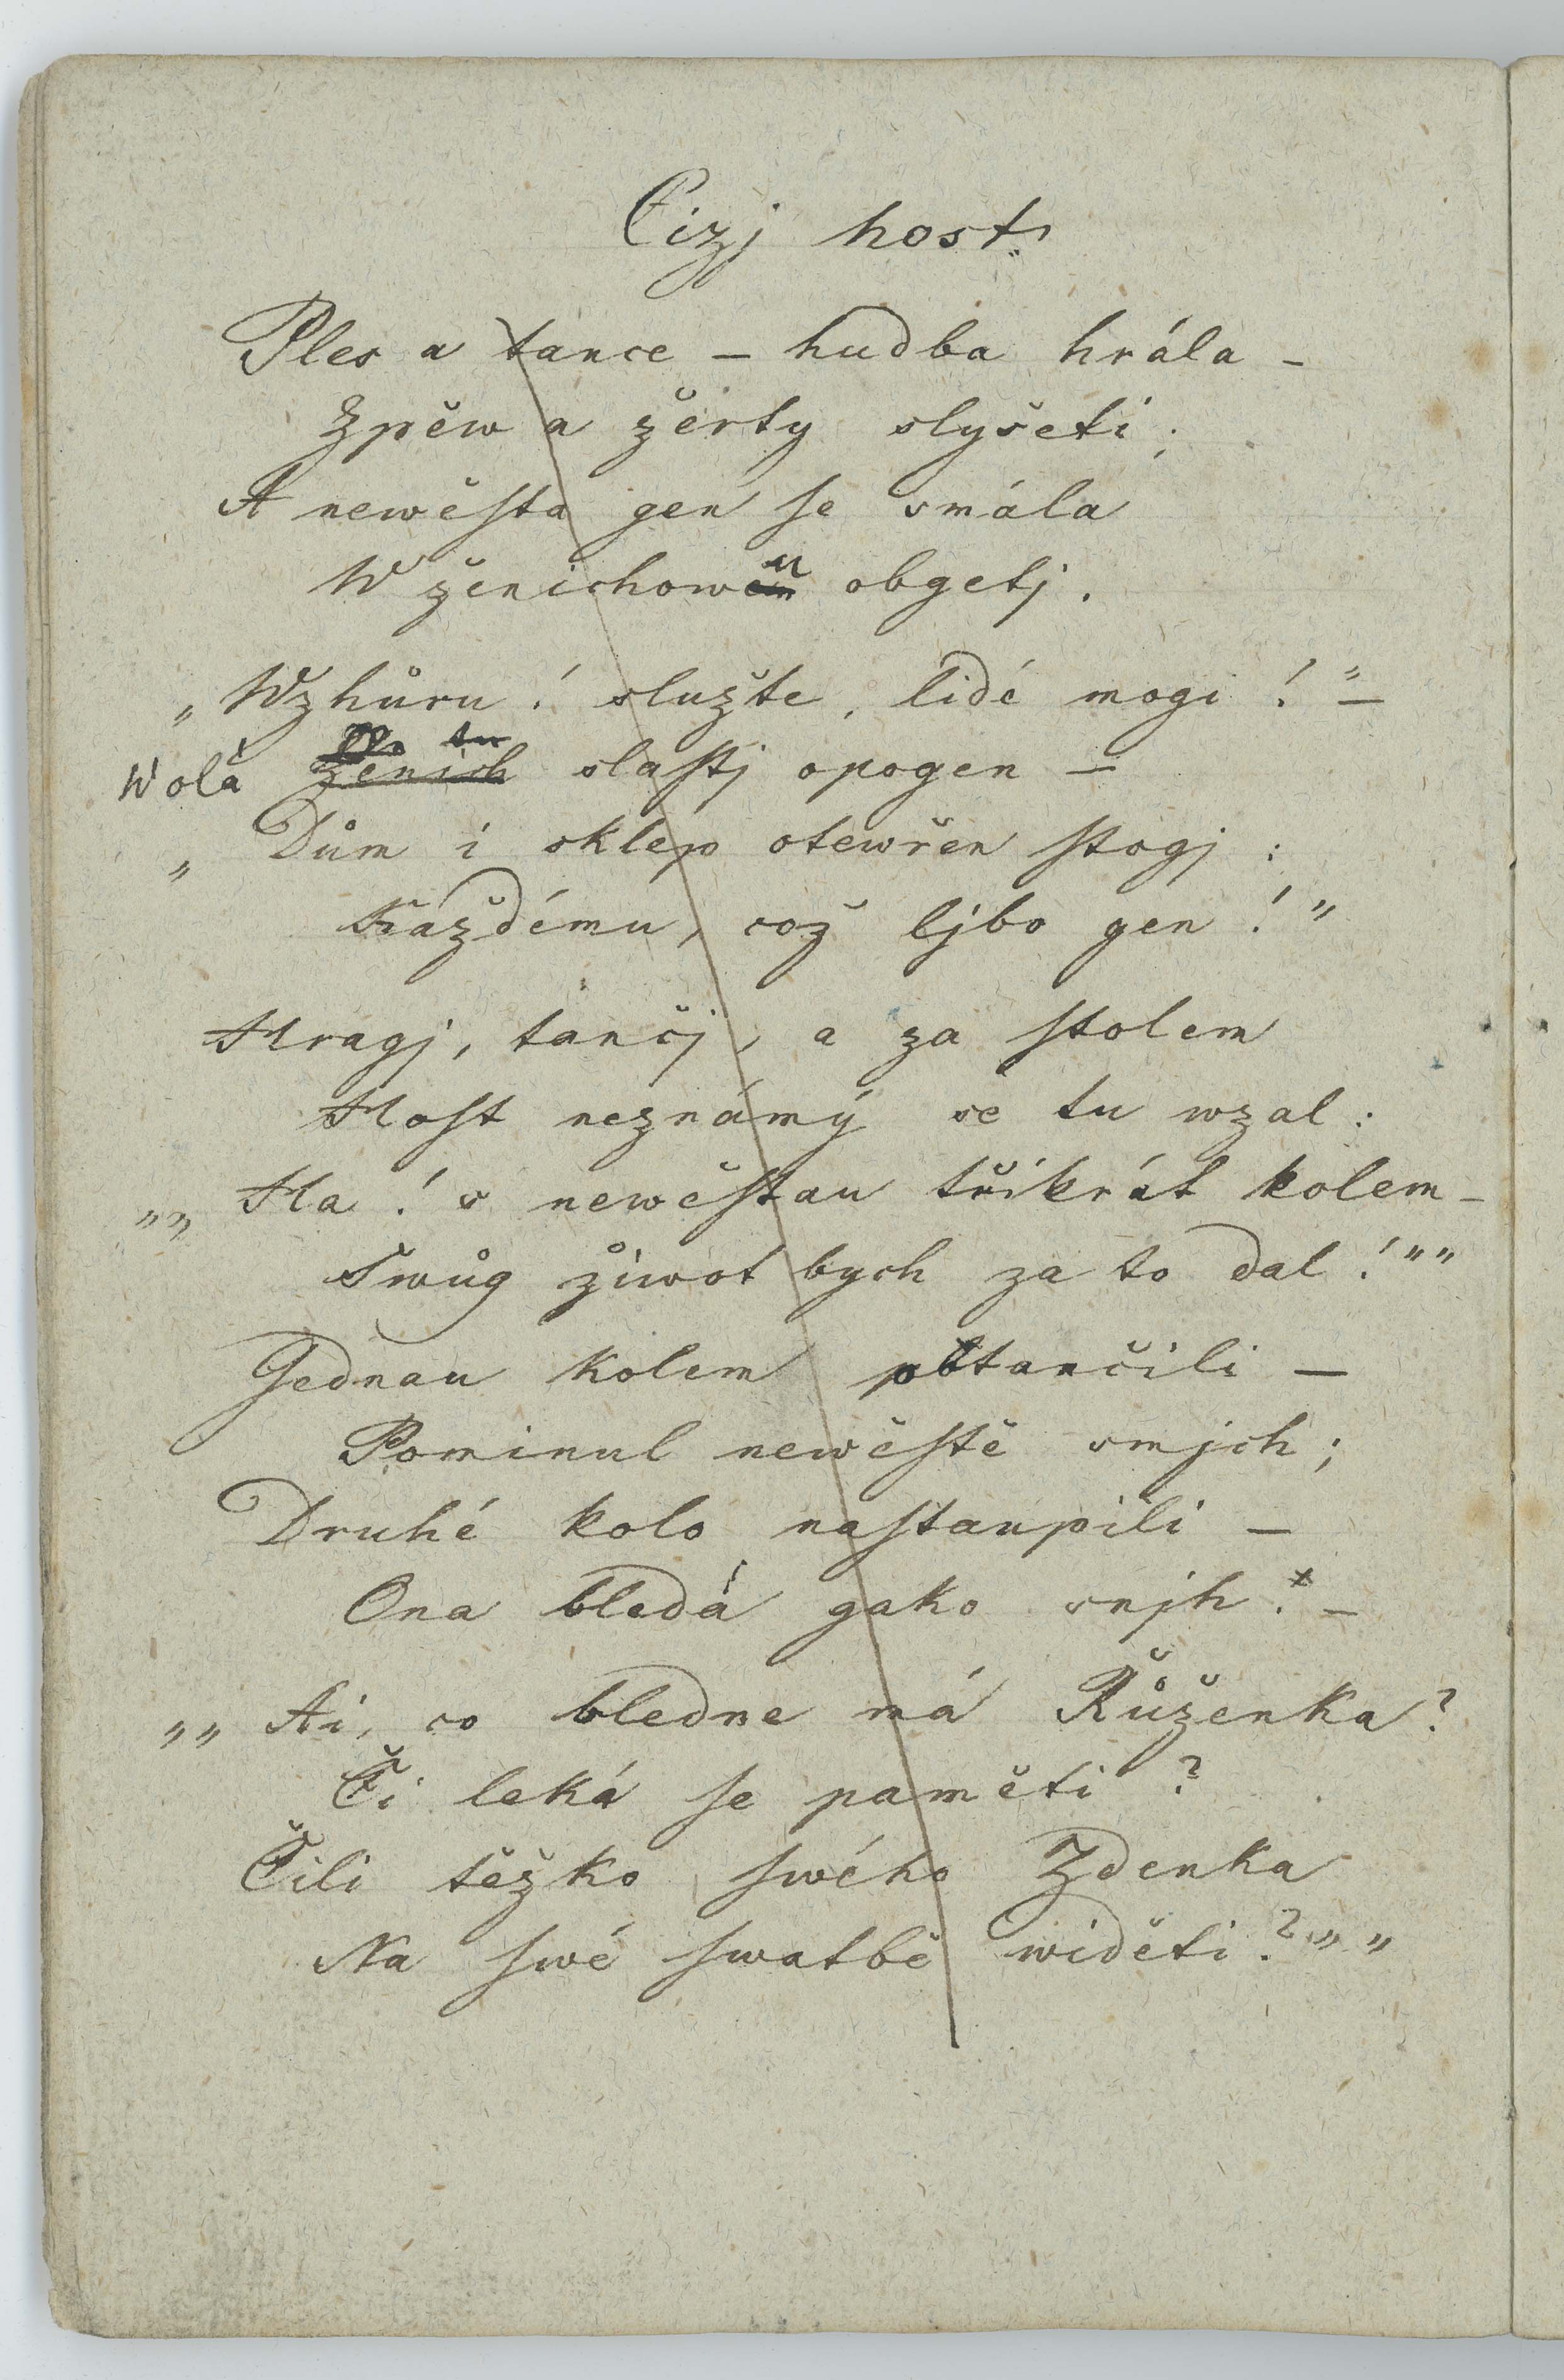 Cizj host.
Ples a tance – hudba hrála –
Zpěw a žerty slyšeti;
A newěſta gen ſe smála
W ženichowu obgetj.
„Wzhůru! služte, lidé mogi!" –
Wolá ženich slaſtj opogen –
„Dům i sklep otewřen ſtogj:
Každému, což ljbo gen!"
Hragj, tančj, a za ſtolem
Hoſt neznámý se tu wzal:
„„Ha! s newěſtau třikrát kolem –
Swůg žiwot bych za to dal!""
Gednau kolem obtančili –
Pominul newěſtě smjch;
Druhé kolo naſtaupili –
Ona bledá gako snjh. –
„„Ai, co bledne má Růženka?
Či leká ſe paměti?
Čili těžko ſwého Zdenka
Na ſwé ſwatbě widěti?""